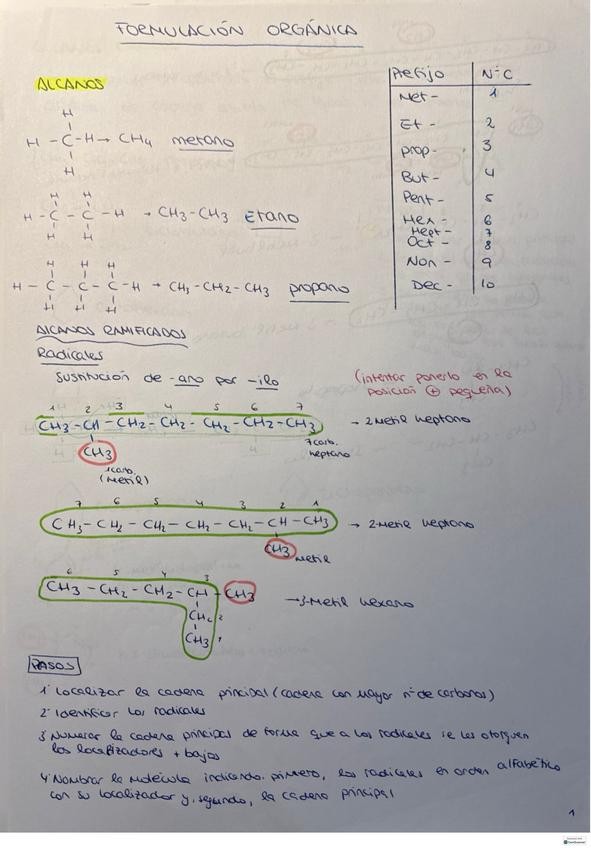 FORMULACIÓN ORGÁNICA
ALCANOS
H
H - C - H → CH4 metano
H
H H
H - C - C - H → CH3 - CH3 Etano
H H
H H H
H - C - C - C - H → CH3 - CH2 - CH3 propano
H H H
Prefijo Nº C
Met- 1
Et- 2
prop- 3
But- 4
Pent- 5
Hex- 6
Hept- 7
Oct- 8
Non- 9
Dec- 10
ALCANOS RAMIFICADOS
Radicales
Sustitución de -ano por -ilo
(intentar ponerlo en la
posición + pequeña)
1 2 3 4 5 6 7
CH3 - CH - CH2 - CH2 - CH2 - CH2 - CH3 → 2 Metil heptano
CH3
1 carb.
(Metil)
7 carb.
heptano
7 6 5 4 3 2 1
CH3 - CH2 - CH2 - CH2 - CH2 - CH - CH3 → 2-Metil heptano
CH3 metil
6 5 4 3
CH3 - CH2 - CH2 - CH - CH3 → 3-Metil hexano
CH2 2
CH3 1
PASOS
1º Localizar la cadena principal (cadena con mayor nº de carbonos)
2º Identificar los radicales
3º Numerar la cadena principal de forma que a los radicales se les otorguen
los localizadores + bajos
4º Nombrar la molécula indicando, primero, los radicales en orden alfabético
con su localizador y, segundo, la cadena principal
1
CamScanner